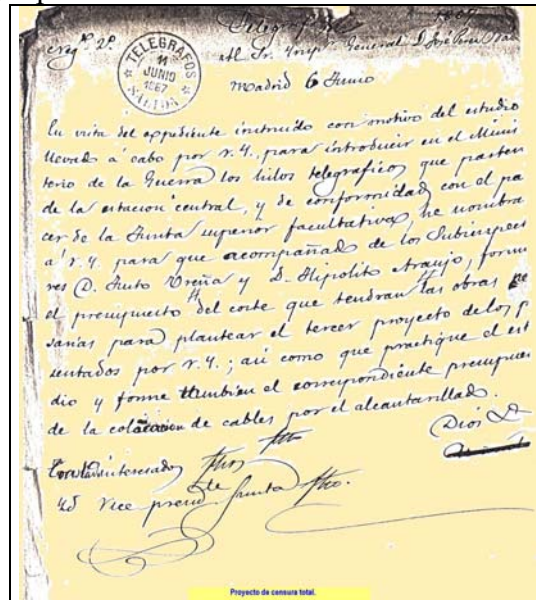 Telegrafos 1867
Neg.º 2º
al Sr. Insp.r General D. José Pérez
TELEGRAFOS
11
JUNIO
1867
SALIDA
Madrid 6 Junio
En vista del expediente instruido con motivo del estudio
llevado á cabo por V. Y., para introducir en el Minis
terio de la Guerra los hilos telegraficos que parten
de la estacion central, y de conformidad con el pa
cer de la Junta superior facultativa, he nombra
á V. Y. para que acompañado de los Subinspec
res D. Justo Ureña y D. Hipolito Araujo, forme
el presupuesto del coste que tendran las obras ne
sarias para plantear el tercer proyecto de los p
sentados por V. Y.; asi como que practique el est
dio y forme tambien el correspondiente presupues
de la colocacion de cables por el alcantarillado.
Dios
interesados
Vice presid.
de Junta
Proyecto de censura total.